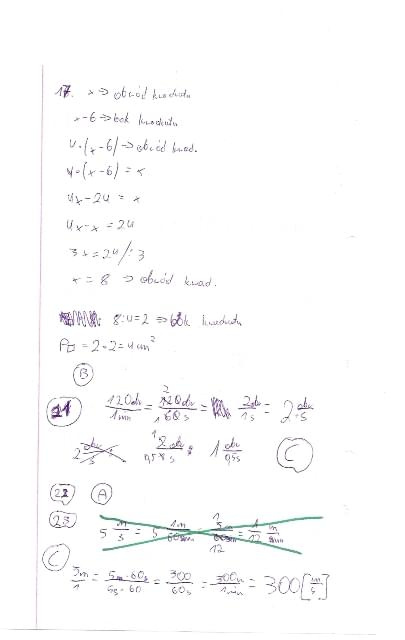 17. x => obwód kwadratu
x-6 => bok kwadratu
4·(x-6) -> obwód kwad.
4·(x-6) = x
4x-24 = x
4x-x = 24
3x = 24 /:3
x = 8 -> obwód kwad.
8:4=2 => bok kwadratu
P□ = 2·2 = 4 cm²
B
21 120 obr/1 min = 120 obr/60 s = 2 obr/1 s = 2 obr/s
2 obr/s 1 obr/0,5 s C
22 A
23 5 m/s = 5 1m/60 = 5m/60 = 1/12 m/min
C
5m/1 = 5m·60s/5s·60 = 300/60s = 300m/1min = 300 [m/s]